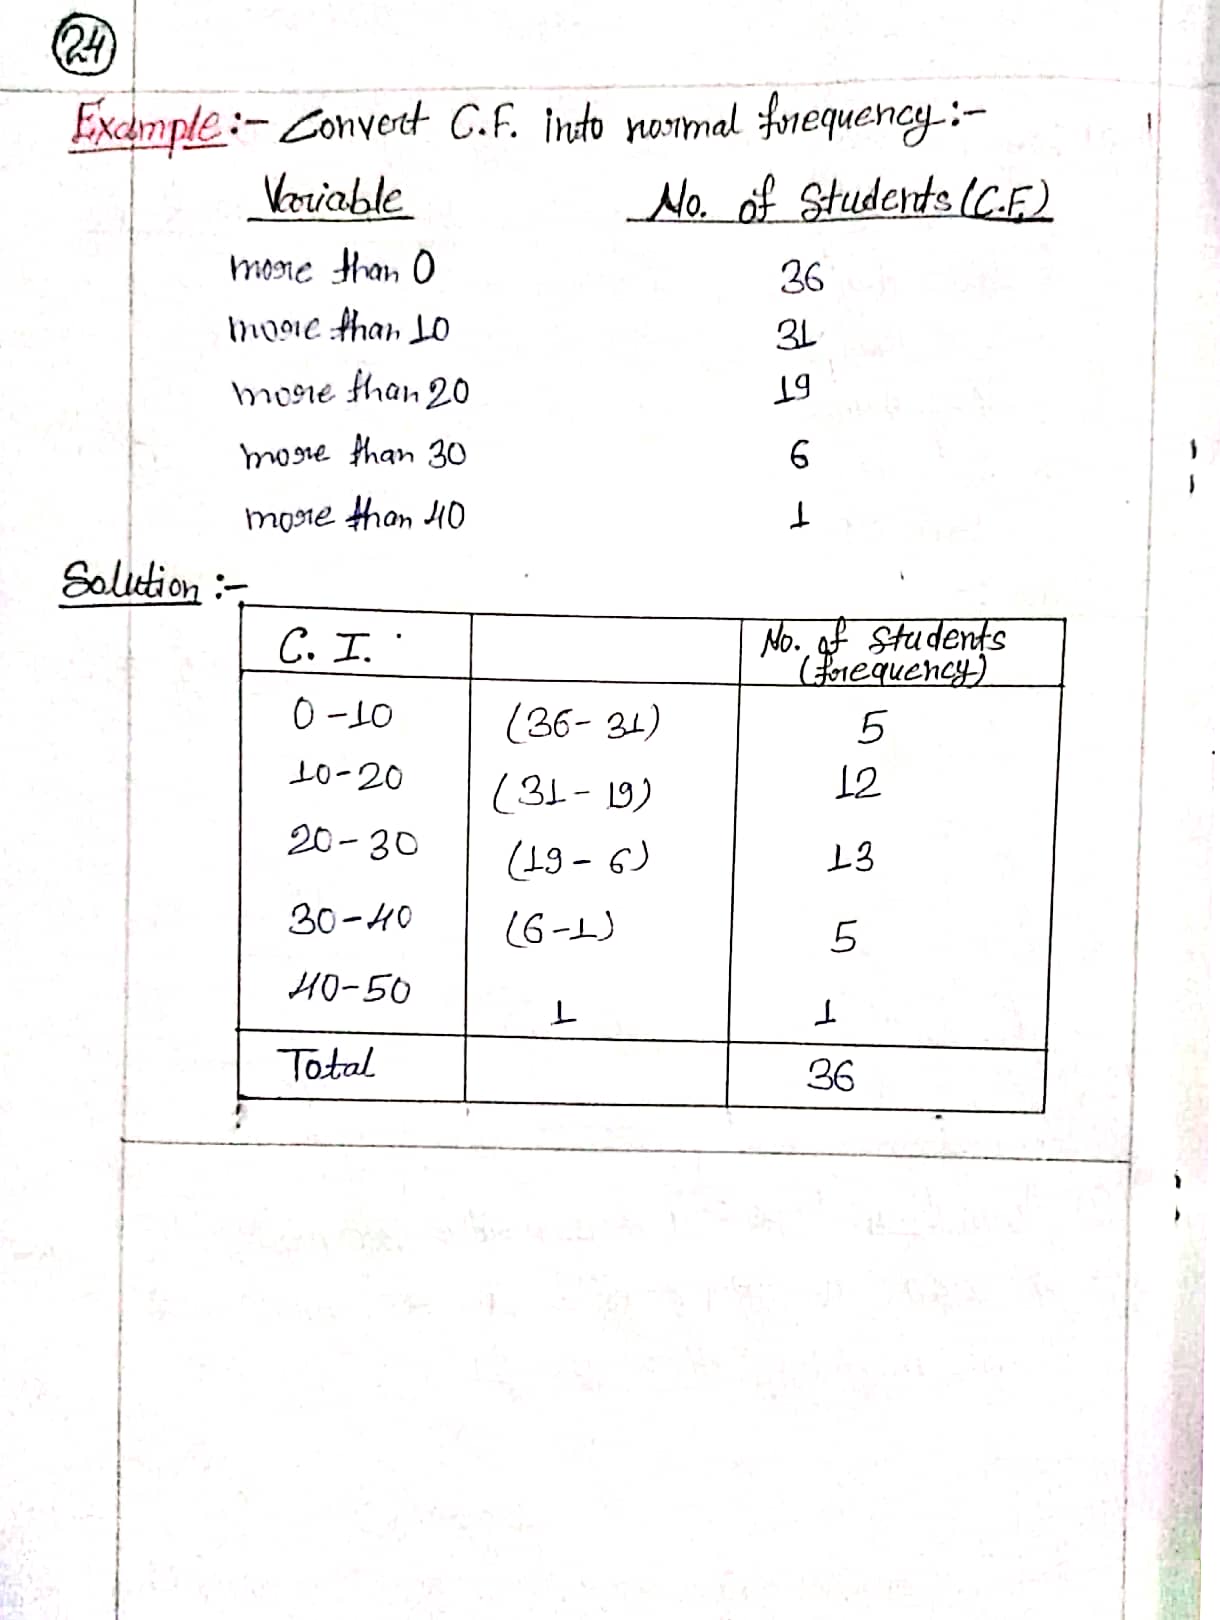 24
Example :- Convert C.F. into normal frequency :-
Variable No. of Students (C.F.)
more than 0 36
more than 10 31
more than 20 19
more than 30 6
more than 40 1
Solution :-
C. I. No. of Students
(frequency)
0-10 (36-31) 5
10-20 (31-19) 12
20-30 (19-6) 13
30-40 (6-1) 5
40-50 1 1
Total 36